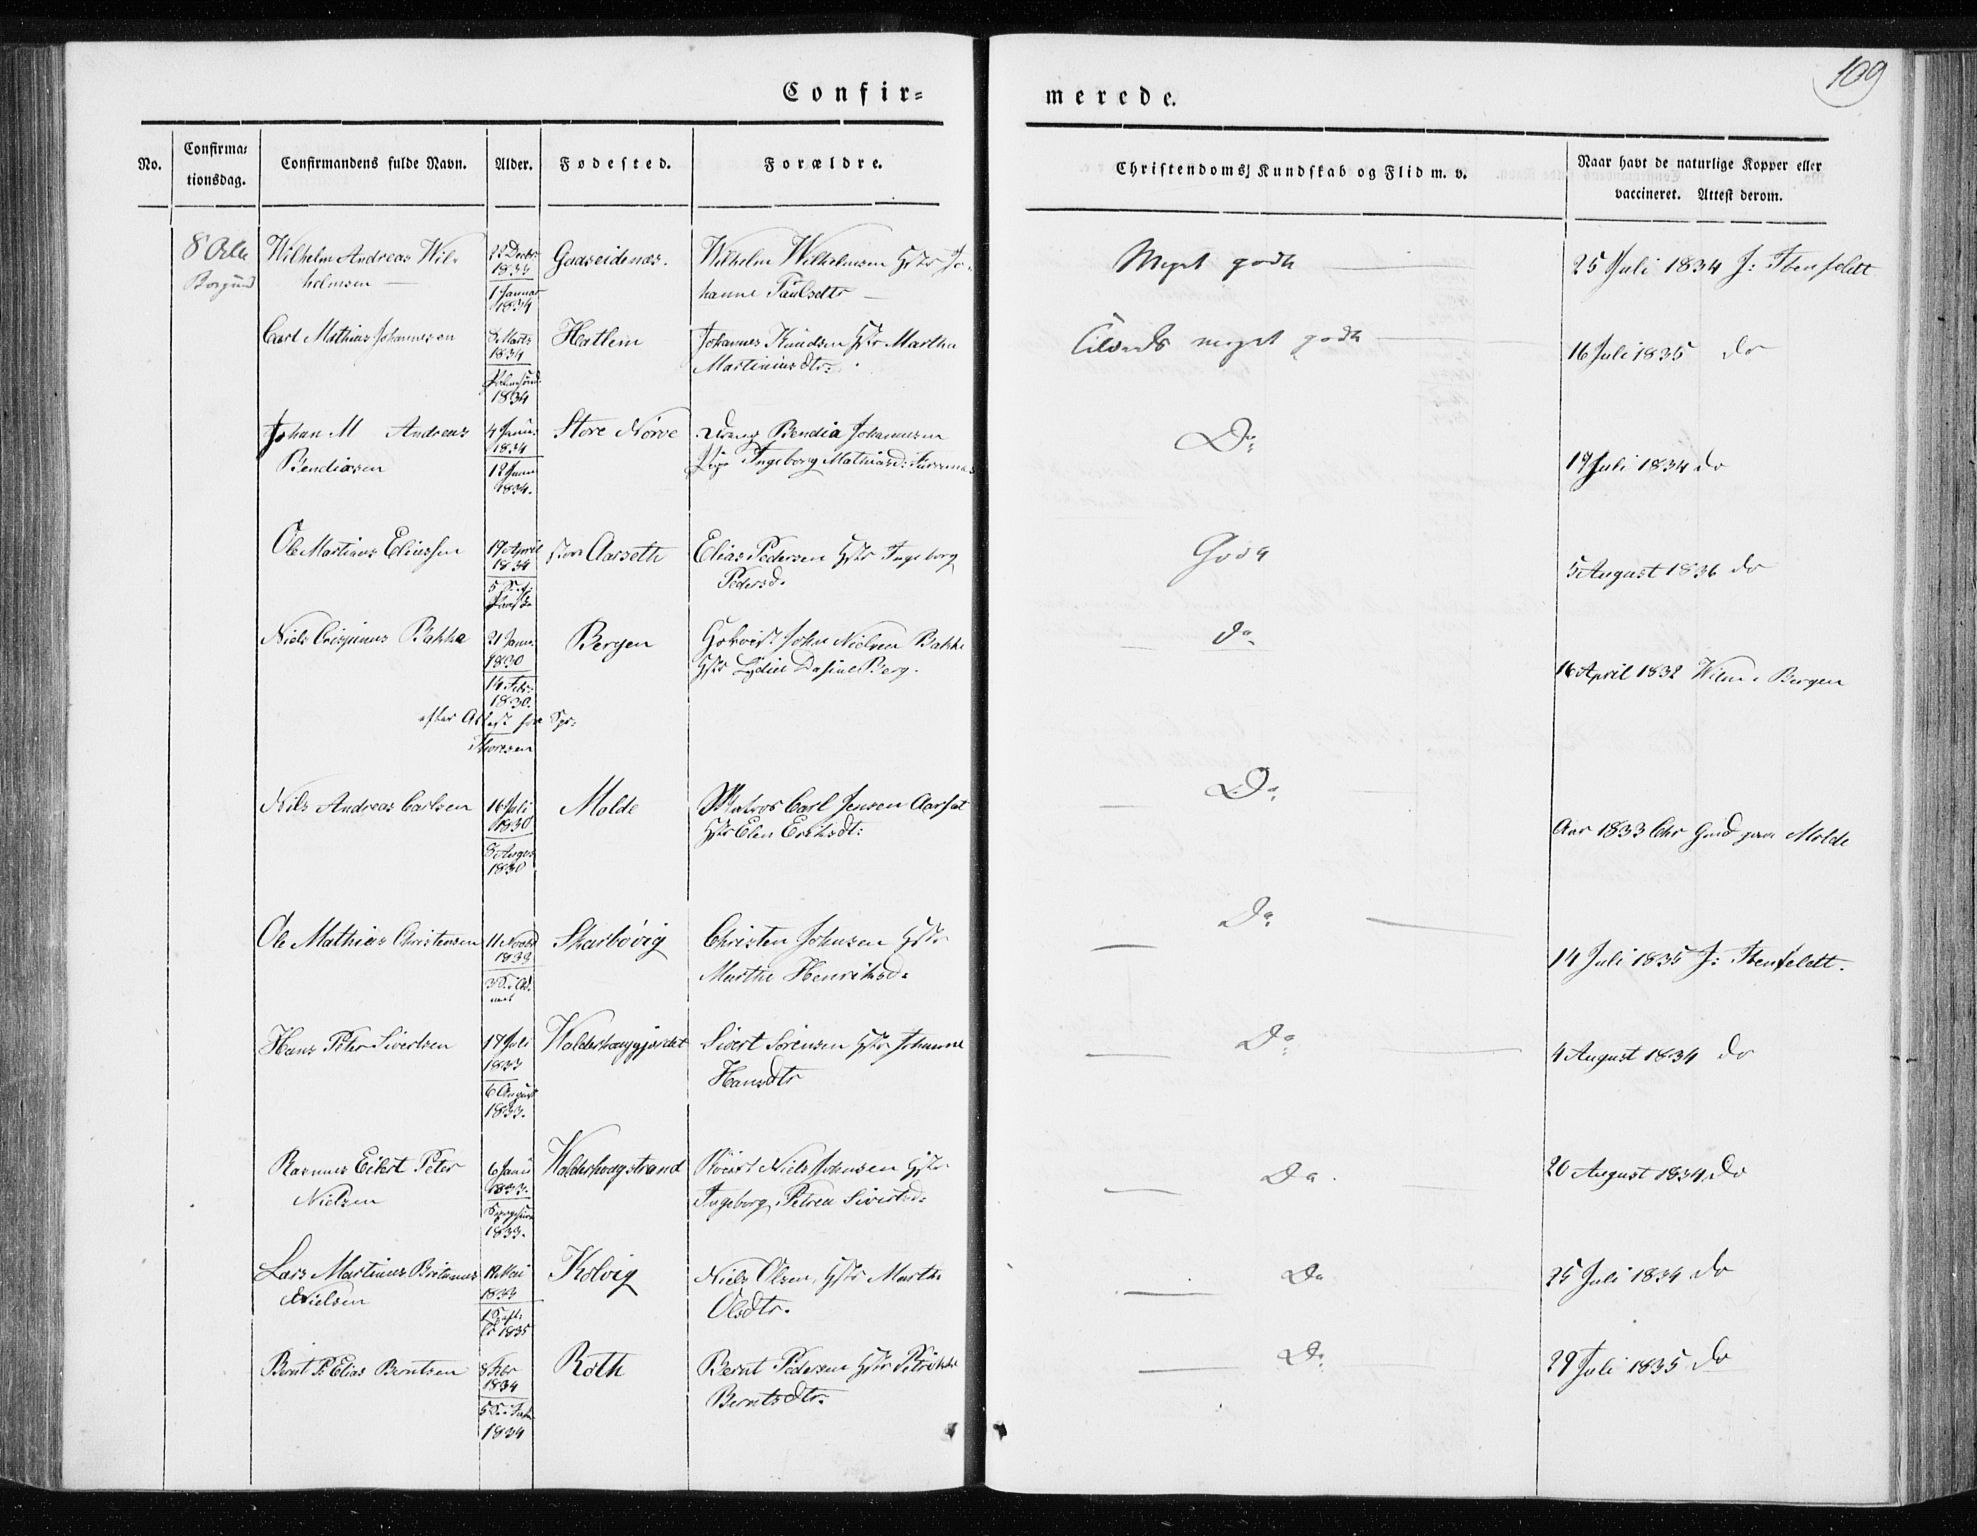 109
Confir=
merede.
No.
Confirma=
tionsdag.
Confirmandens fulde Navn.
Alder.
Fodested.
Forældre.
Christendoms Kundskab og Flid m. v.
Naar havt de naturlige Kopper eller
vaccineret. Attest derom.
8 Octe
Borgund
Wilhelm Andreas Wil-
helmsen
22 Decbr
1833
1 Januar
1834
Gaaseidenæs.
Wilhelm Wilhelmsen Hstr Jo-
hanne Paulsdtr
Meget godt
25 Juli 1834 J: Ibenfeldt
Carl Mathias Johannesen
8 Marts
1834
Palmesønd
1834
Hatlem
Johannes Knudsen Hstr Martha
Martinusdtr.
Tilfreds meget godt
16 Juli 1835 do
Johan M Andreas
Bendiasen
4 Janu:
1834
12 Janu
1834.
Store Nørve
Dreng Bendix Johannesen
Pige Ingeborg Mathiasd:
Do
17 Juli 1834 do
Ole Martinus Eliassen
17 April
1834
5 S. e:
Paaske
Aarseth
Elias Pedersen Hstr Ingeborg
Pedersd.
Godt
5 August 1836 do
Niels Crispinus Bakke
21 Janu.
1830
14 Febr:
1830.
efter Attest fra Spr:
Thoresen
Bergen
John Nielsen Bakke
Hstr Lydia Berg.
do
16 April 1832 Bergen
Nils Andreas Carlsen
16 Juli
1830
8 Augst
1830
Molde
Matros Carl Jensen Aarset
Hstr Elen Eriksdt:
Do
Aar 1833 Chr paa Molde
Ole Mathias Christensen
11 Novbr
1833
3 S. i Ad-
vent
Skarbøvig
Christen Johnsen Hstr
Marthe Henriksd:
Do
14 Juli 1835 J: Ibenfeldt.
Hans Peter Sivertsen
17 Juli
1833
6 August
1833.
Walderhaugjærdet
Sivert Sørensen Hstr Johanne
Hansdtr
Do
4 August 1834 do
Rasmus Eilert Peter
Nielsen
6 Janu
1833.
1833.
Walderhaugstrand
Niels Johnsen Hstr
Ingeborg Petrea Sivertsd:
Do.
20 August 1834 do
Lars Martinus
Nielsen
Mai
1833
1835
Kolvig
Niels Olsen, Hstr Marthe
Olsdtr.
Do
25 Juli 1834 do
Bernt P. Elias Berntsen
8 Febr
1834
1834
Roth
Bernt Pedersen Hstr Petrikke
Berntsdtr.
Do
29 Juli 1835 do